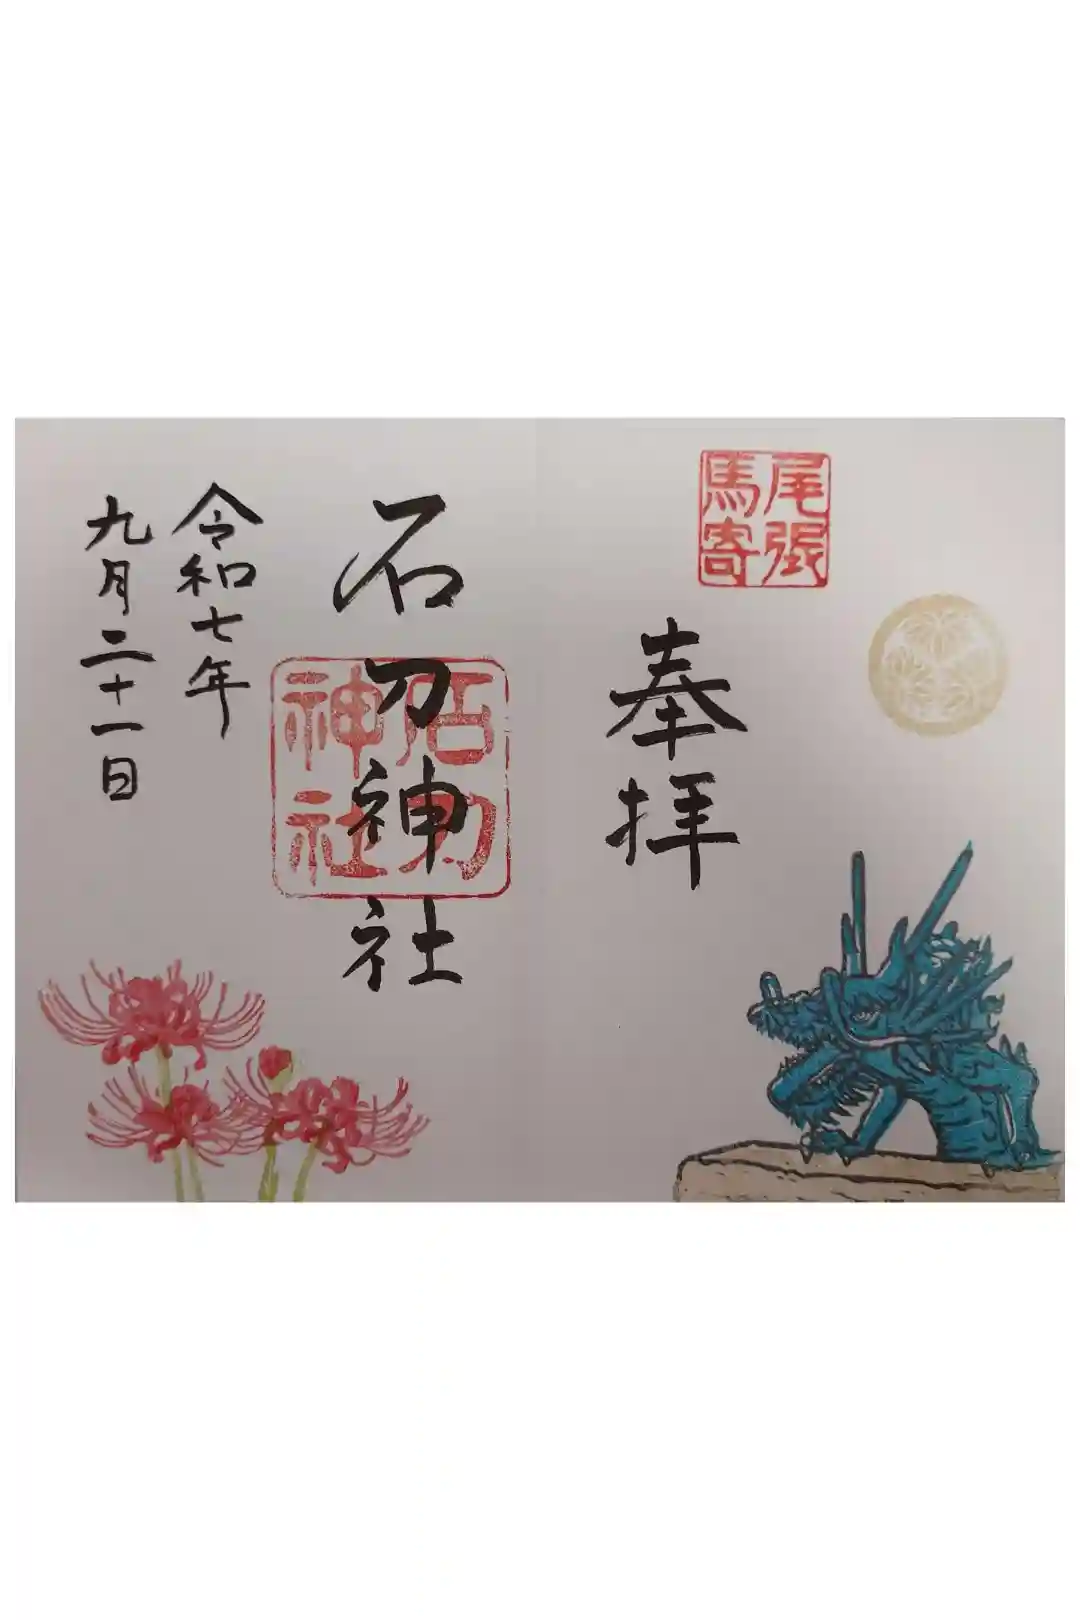 尾張
馬寄
奉拝
石刀神社
石刀
神社
令和七年
九月二十一日